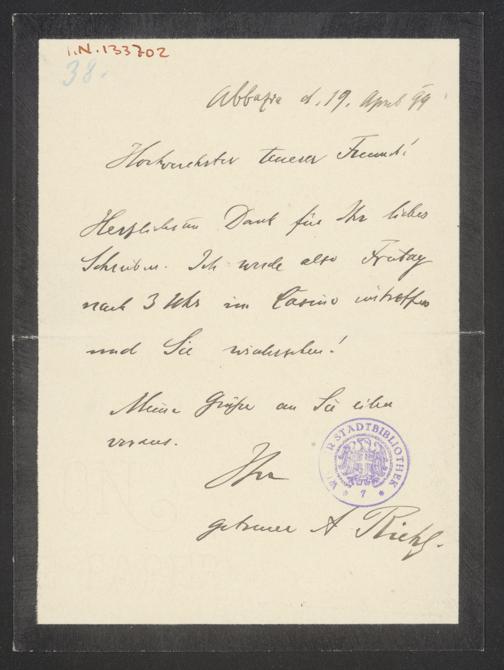 I.N. 133702
38.
Abbazia d. 19. April 99
Hochverehrter teurer Freund!
Herzlichsten Dank für Ihr liebes
Schreiben. Ich werde also Freitag
nach 3 Uhr im Casino eintreffen
und Sie wiedersehen!
Meine Grüße an Sie eilen
voraus.
Ihr
getreuer A Riehl.
WIENER STADTBIBLIOTHEK
* 7 *